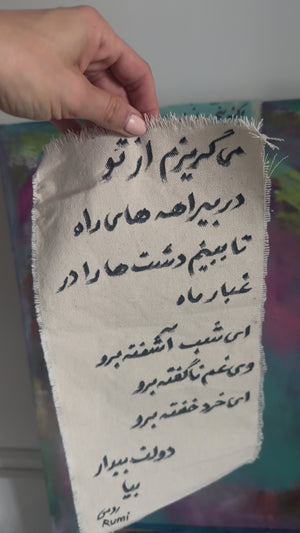 می‌گریزم از تو
در بیراهه های راه
تا ببینم دشت ها را در
غبار ماه
ای شب آشفته برو
وی غم ناگفته برو
ای خرد خفته برو
دولت بیدار
بیا
رومی
Rumi